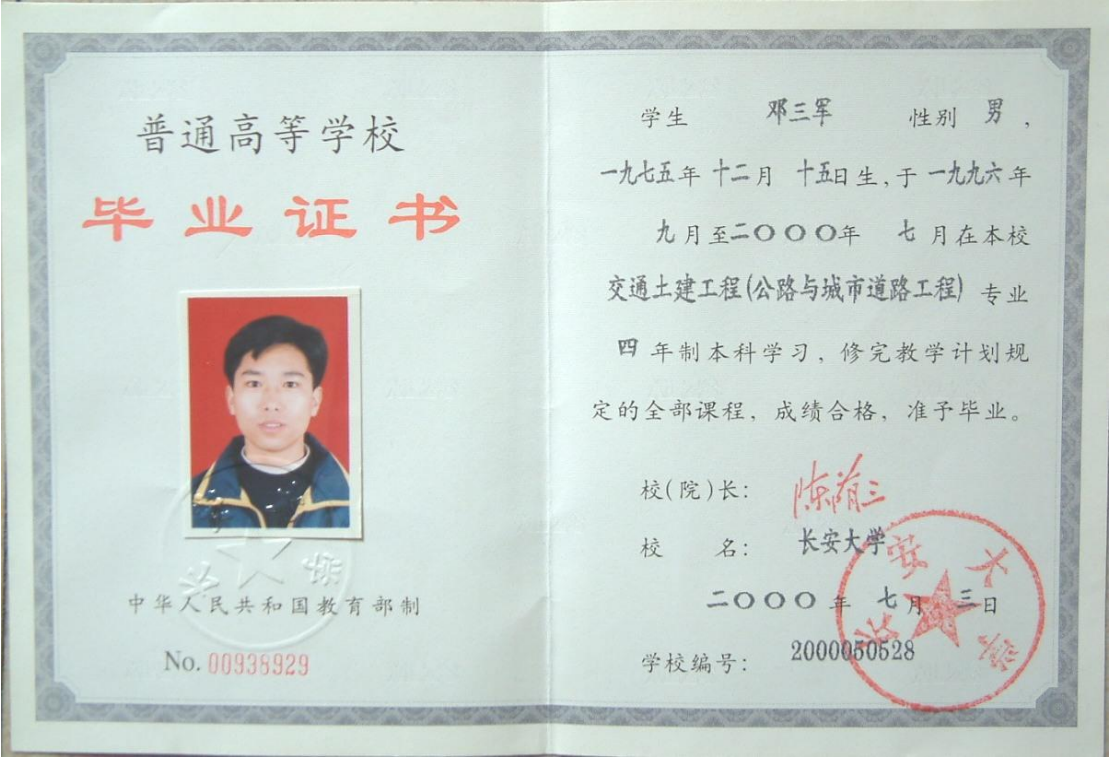 普通高等学校
毕业证书
中华人民共和国教育部制
No. 00938929
学生 邓三军 性别 男，
一九七五年 十二月 十五日生，于一九九六年
九月至二〇〇〇年 七月在本校
交通土建工程(公路与城市道路工程) 专业
四 年制本科学习，修完教学计划规
定的全部课程，成绩合格，准予毕业。
校(院)长：
校 名： 长安大学
二〇〇〇年 七月 三日
学校编号： 2000050528
长安大学